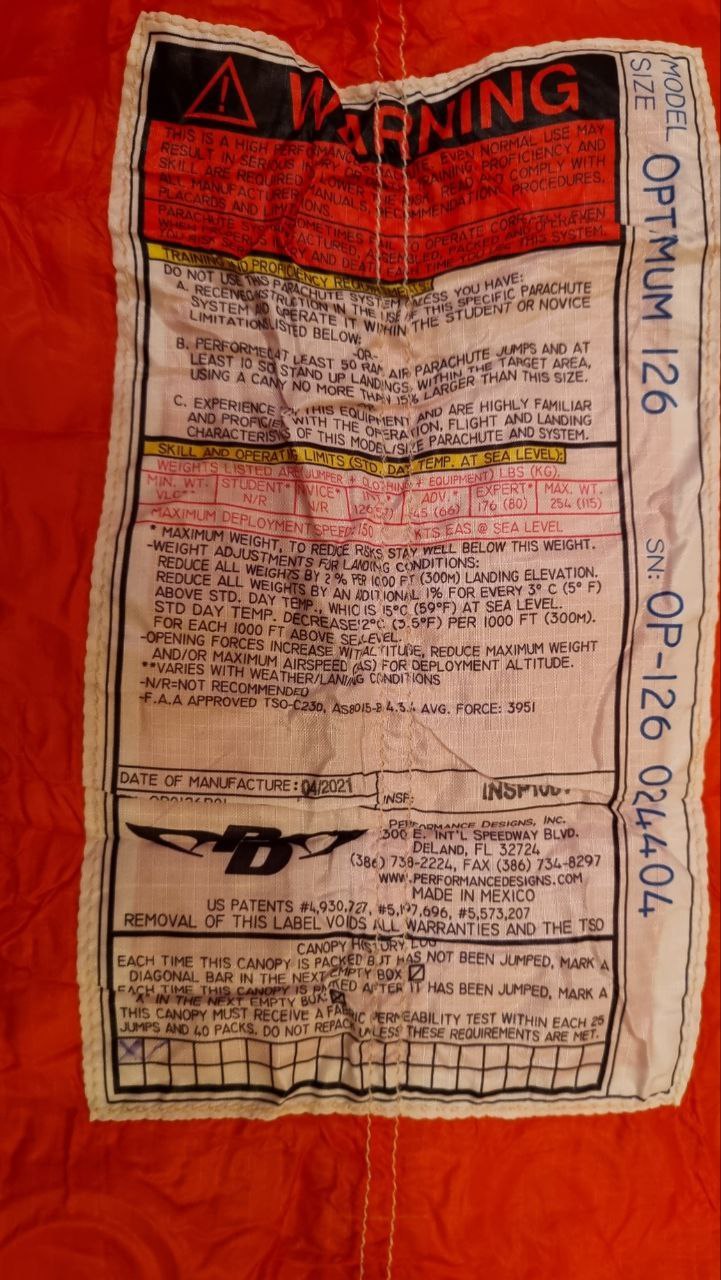 WARNING
THIS IS A HIGH PERFORMANCE PARACHUTE. EVEN NORMAL USE MAY
RESULT IN SERIOUS INJURY OR DEATH. TRAINING, PROFICIENCY AND
SKILL ARE REQUIRED TO LOWER THE RISK. READ AND COMPLY WITH
ALL MANUFACTURER MANUALS, RECOMMENDATIONS, PROCEDURES,
PLACARDS AND LIMITATIONS.
PARACHUTE SYSTEMS SOMETIMES FAIL TO OPERATE CORRECTLY, EVEN
WHEN MANUFACTURED, ASSEMBLED, PACKED AND OPERATED
YOU RISK SERIOUS INJURY AND DEATH EACH TIME YOU USE THIS SYSTEM.
TRAINING AND PROFICIENCY REQUIREMENTS:
DO NOT USE THIS PARACHUTE SYSTEM UNLESS YOU HAVE:
A. RECEIVED INSTRUCTION IN THE USE OF THIS SPECIFIC PARACHUTE
SYSTEM AND OPERATE IT WITHIN THE STUDENT OR NOVICE
LIMITATIONS LISTED BELOW;
-OR-
B. PERFORMED AT LEAST 50 RAM AIR PARACHUTE JUMPS AND AT
LEAST 10 STAND UP LANDINGS, WITHIN THE TARGET AREA,
USING A CANOPY NO MORE THAN 15% LARGER THAN THIS SIZE.
C. EXPERIENCE THIS EQUIPMENT AND ARE HIGHLY FAMILIAR
AND PROFICIENT WITH THE OPERATION, FLIGHT AND LANDING
CHARACTERISTICS OF THIS MODEL/SIZE PARACHUTE AND SYSTEM.
SKILL AND OPERATING LIMITS (STD. DAY TEMP. AT SEA LEVEL):
WEIGHTS LISTED ARE (JUMPER + CLOTHING + EQUIPMENT) LBS (KG).
MIN. WT. STUDENT* NOVICE* INT.* ADV.* EXPERT* MAX. WT.
VLC** N/R N/R 126(57) 145 (66) 176 (80) 254 (115)
MAXIMUM DEPLOYMENT SPEED: 150 KTS EAS @ SEA LEVEL
* MAXIMUM WEIGHT, TO REDUCE RISKS STAY WELL BELOW THIS WEIGHT.
-WEIGHT ADJUSTMENTS FOR LANDING CONDITIONS:
REDUCE ALL WEIGHTS BY 2% PER 1000 FT (300M) LANDING ELEVATION.
REDUCE ALL WEIGHTS BY AN ADDITIONAL 1% FOR EVERY 3° C (5° F)
ABOVE STD. DAY TEMP., WHICH IS 15°C (59°F) AT SEA LEVEL.
STD DAY TEMP. DECREASE 2°C (3.5°F) PER 1000 FT (300M).
FOR EACH 1000 FT ABOVE SEA LEVEL.
-OPENING FORCES INCREASE WITH ALTITUDE, REDUCE MAXIMUM WEIGHT
AND/OR MAXIMUM AIRSPEED (EAS) FOR DEPLOYMENT ALTITUDE.
**VARIES WITH WEATHER/LANDING CONDITIONS
-N/R=NOT RECOMMENDED
-F.A.A APPROVED TSO-C23D, AS8015-B 4.3.4 AVG. FORCE: 3951
DATE OF MANUFACTURE: 04/2021
INSP:
PD
PERFORMANCE DESIGNS, INC.
300 E. INT'L SPEEDWAY BLVD.
DELAND, FL 32724
(386) 738-2224, FAX (386) 734-8297
WWW.PERFORMANCEDESIGNS.COM
MADE IN MEXICO
US PATENTS #4,930,727, #5,197,696, #5,573,207
REMOVAL OF THIS LABEL VOIDS ALL WARRANTIES AND THE TSO
CANOPY HISTORY LOG
EACH TIME THIS CANOPY IS PACKED BUT HAS NOT BEEN JUMPED, MARK A
DIAGONAL BAR IN THE NEXT EMPTY BOX
EACH TIME THIS CANOPY IS PACKED AFTER IT HAS BEEN JUMPED, MARK A
"X" IN THE NEXT EMPTY BOX
THIS CANOPY MUST RECEIVE A FABRIC PERMEABILITY TEST WITHIN EACH 25
JUMPS AND 40 PACKS. DO NOT REPACK UNLESS THESE REQUIREMENTS ARE MET.
MODEL
SIZE OPTIMUM 126
SN: OP-126 024404